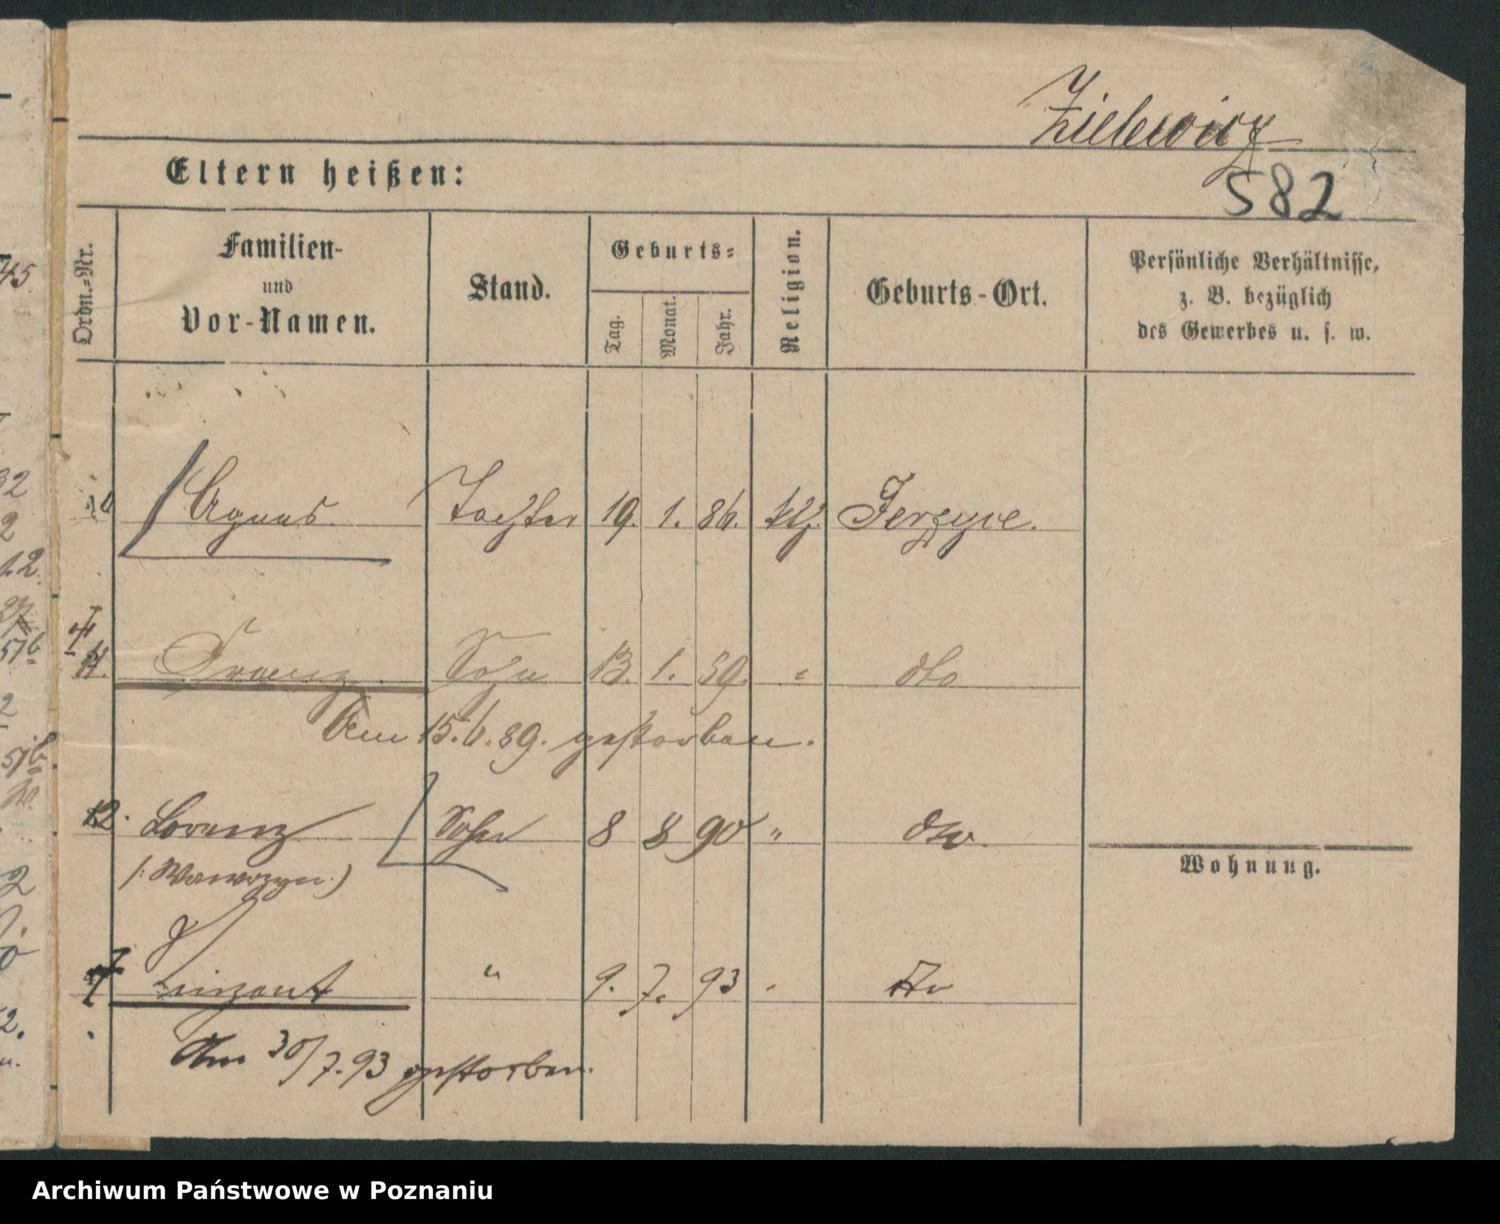 Zielewicz
582
Eltern heißen:
Ordn.-Nr.
Familien-
und
Vor-Namen.
Stand.
Geburts-
Tag.
Monat.
Jahr.
Religion.
Geburts-Ort.
Persönliche Verhältnisse,
z. B. bezüglich
des Gewerbes u. s. w.
Agnes Tochter 19. 1. 86. kth. Jerzyce.
11. Franz Sohn 13. 1. 89. " dto
Am 15. 6. 89. gestorben.
12. Lorenz Sohn 8 8 90 " dto.
(: Wawrzyn :)
Wohnung.
" 9. 7. 93 " dto
Am 30/7. 93 gestorben.
Archiwum Państwowe w Poznaniu